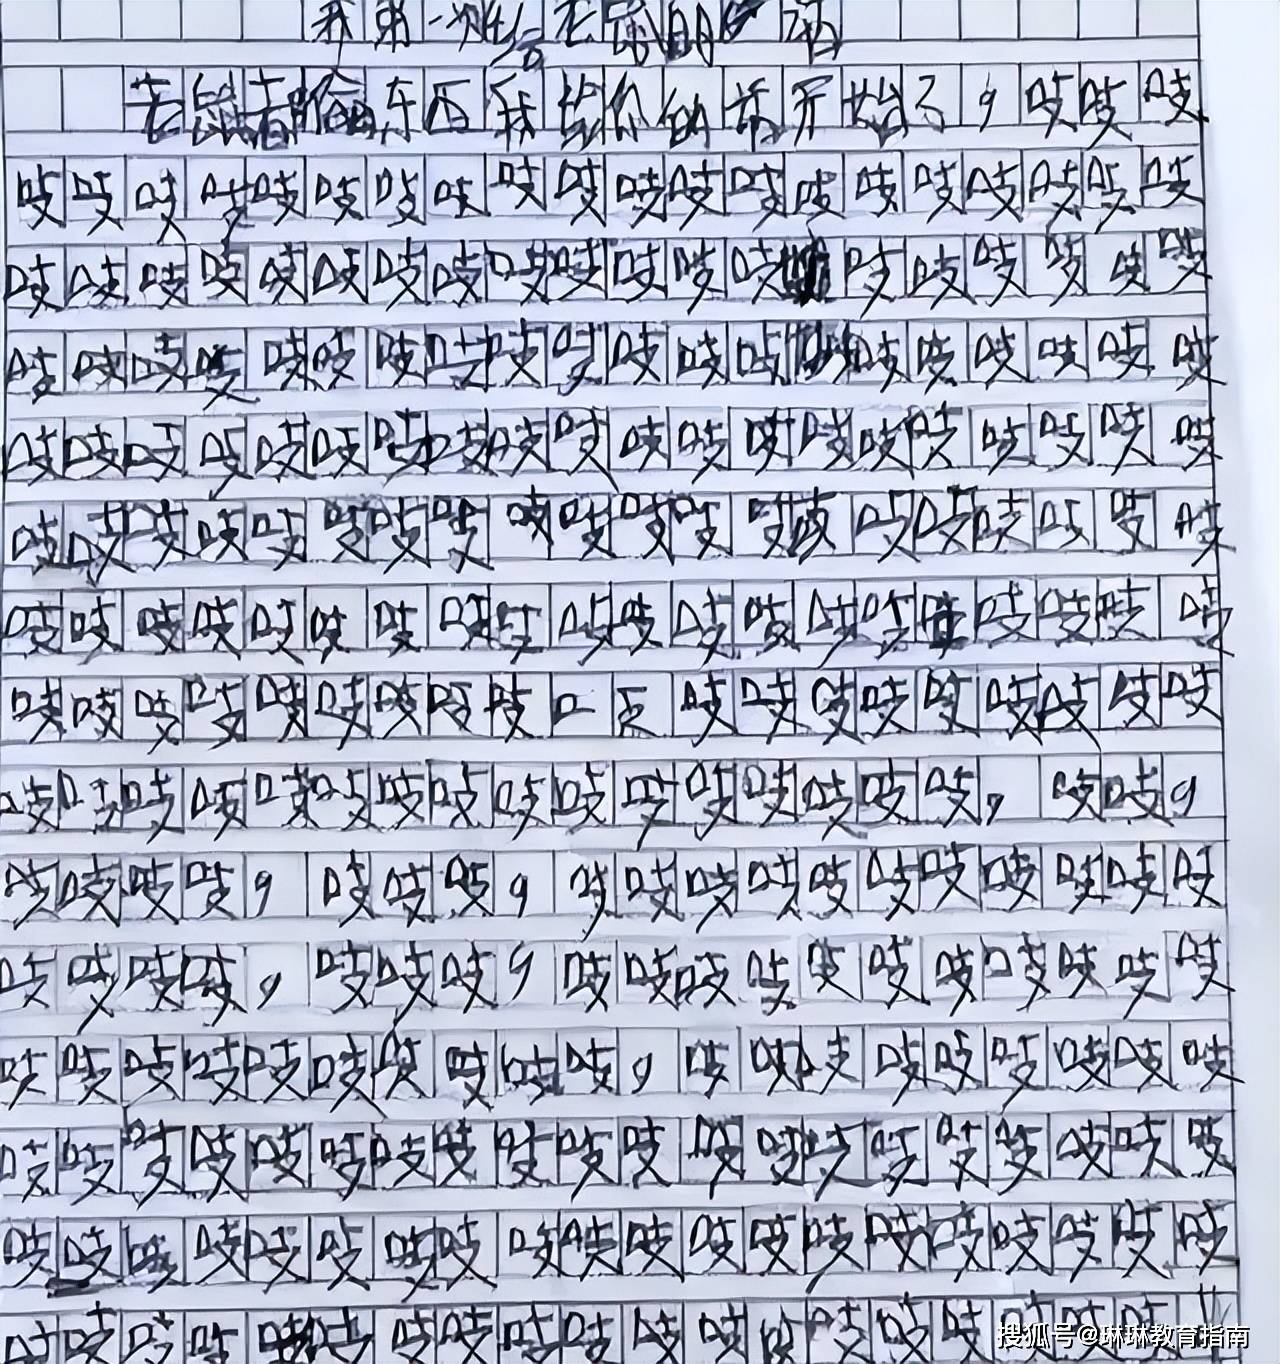 我第一次给老鼠的话
老鼠老偷东西我给你的话开始了，吱吱吱
吱吱吱吱吱吱吱吱吱吱吱吱吱吱吱吱吱吱吱吱
吱吱吱吱吱吱吱吱吱吱吱吱吱吱吱吱吱吱吱
吱吱吱吱吱吱吱吱吱吱吱吱吱吱吱吱吱吱吱
吱吱吱吱吱吱吱吱吱吱吱吱吱吱吱吱吱吱吱吱
吱吱吱吱吱吱吱吱吱吱吱吱吱吱吱吱吱吱吱吱
吱吱吱吱吱吱吱吱吱吱吱吱吱吱吱吱吱吱吱
吱吱吱吱吱吱吱吱吱吱吱吱吱吱吱吱吱吱
吱吱吱吱吱吱吱吱吱吱吱吱吱吱吱吱，吱吱，
吱吱吱吱，吱吱吱，吱吱吱吱吱吱吱吱吱吱吱
吱吱吱吱，吱吱吱，吱吱吱吱吱吱吱吱吱吱吱
吱吱吱吱吱吱吱吱吱吱，吱吱吱吱吱吱吱吱吱
吱吱吱吱吱吱吱吱吱吱吱吱吱吱吱吱吱吱吱吱
吱吱吱吱吱吱吱吱吱吱吱吱吱吱吱吱吱吱吱吱
吱吱吱吱吱吱吱吱吱吱吱吱吱吱吱吱吱吱吱
搜狐号@琳琳教育指南